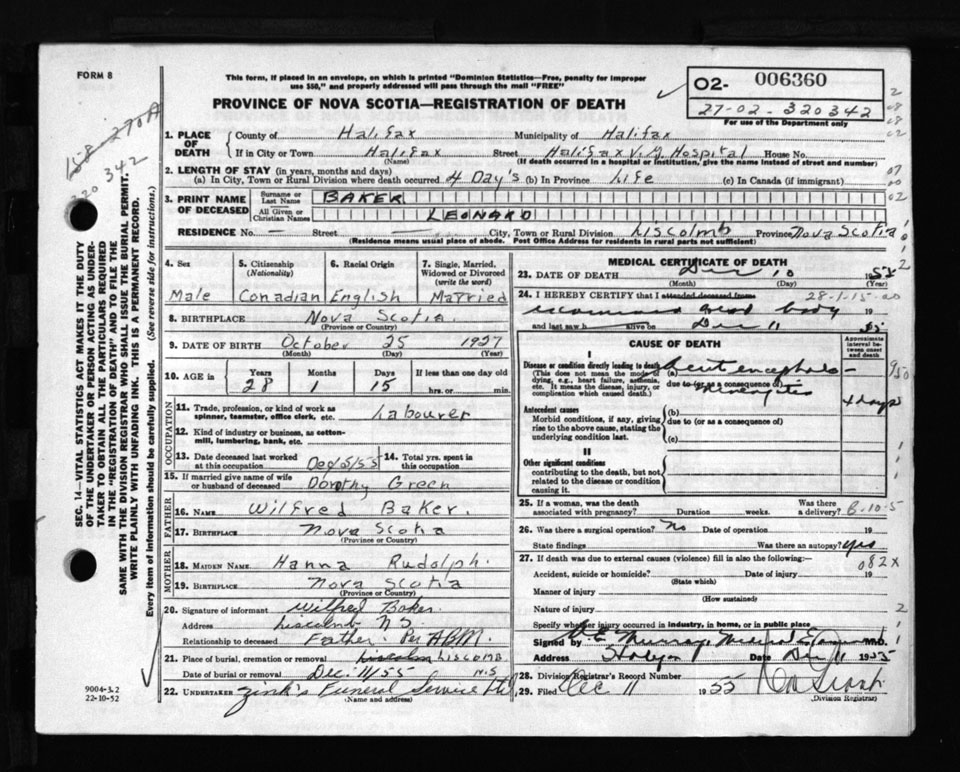 FORM 8
This form, if placed in an envelope, on which is printed "Dominion Statistics—Free, penalty for improper
use $50," and properly addressed will pass through the mail "FREE"
PROVINCE OF NOVA SCOTIA—REGISTRATION OF DEATH
02- 006360
27-02-320342
For use of the Department only
1. PLACE OF DEATH
County of Halifax Municipality of Halifax
If in City or Town Halifax Street Halifax V. G. Hospital House No.
(Name) (If death occurred in a hospital or institution, give the name instead of street and number)
2. LENGTH OF STAY (in years, months and days)
(a) In City, Town or Rural Division where death occurred 4 Day's (b) In Province Life (c) In Canada (if immigrant)
3. PRINT NAME OF DECEASED
Surname or Last Name BAKER
All Given or Christian Names LEONARD
RESIDENCE No. — Street — City, Town or Rural Division Liscolmb Province Nova Scotia
(Residence means usual place of abode. Post Office Address for residents in rural parts not sufficient)
4. Sex
Male
5. Citizenship
(Nationality)
Canadian
6. Racial Origin
English
7. Single, Married, Widowed or Divorced
(write the word)
Married
8. BIRTHPLACE Nova Scotia
(Province or Country)
9. DATE OF BIRTH October 25 1927
(Month) (Day) (Year)
10. AGE in
Years Months Days If less than one day
28 1 15 hrs. or min.
OCCUPATION
11. Trade, profession, or kind of work as
spinner, teamster, office clerk, etc. Labourer
12. Kind of industry or business, as cotton-
mill, lumbering, bank, etc.
13. Date deceased last worked
at this occupation Dec/5/55
14. Total yrs. spent in
this occupation
15. If married give name of wife
or husband of deceased Dorothy Green
FATHER
16. NAME Wilfred Baker.
17. BIRTHPLACE Nova Scotia
(Province or Country)
MOTHER
18. MAIDEN NAME Hanna Rudolph.
19. BIRTHPLACE Nova Scotia
(Province or Country)
20. Signature of informant Wilfred Baker.
Address Liscomb N.S.
Relationship to deceased Father. Per ABM.
21. Place of burial, cremation or removal LISCOMB.
Date of burial or removal Dec. 11/55 N.S
22. UNDERTAKER Zink's Funeral Service Ltd
(Name and address)
MEDICAL CERTIFICATE OF DEATH
23. DATE OF DEATH Dec 10 1955
(Month) (Day)
24. I HEREBY CERTIFY that I attended deceased from 28-1-15-00
examined dead body 19
and last saw h alive on Dec 11 55
CAUSE OF DEATH
Approximate interval between onset and death
I
Disease or condition directly leading to death
(This does not mean the mode of dying, e.g., heart failure, asthenia, etc. It means the disease, injury, or complication which caused death.)
(a) Acute encephalo-
due to (or as a consequence of)
4 days
950
Antecedent causes
Morbid conditions, if any, giving rise to the above cause, stating the underlying condition last.
(b)
due to (or as a consequence of)
(c)
II
Other significant conditions
contributing to the death, but not related to the disease or condition causing it.
25. If a woman, was the death Was there
associated with pregnancy? Duration weeks. a delivery? B-10-5
26. Was there a surgical operation? No Date of operation 19
State findings Was there an autopsy? Yes
27. If death was due to external causes (violence) fill in also the following: 082X
Accident, suicide or homicide? Date of injury 19
(State which)
Manner of injury
(How sustained)
Nature of injury
Specify whether injury occurred in industry, in home, or in public place
Signed by Murray, Medical Examiner M.D.
Address Halifax Date Dec 11 1955
28. Division Registrar's Record Number
29. Filed Dec 11 1955
(Division Registrar)
9004-3.2
22-10-52
SEC. 14—VITAL STATISTICS ACT MAKES IT THE DUTY
OF THE UNDERTAKER OR PERSON ACTING AS UNDER-
TAKER TO OBTAIN ALL THE PARTICULARS REQUIRED
IN THE "REGISTRATION OF DEATH" AND TO FILE THE
SAME WITH THE DIVISION REGISTRAR WHO SHALL ISSUE THE BURIAL PERMIT.
WRITE PLAINLY WITH UNFADING INK. THIS IS A PERMANENT RECORD.
Every item of information should be carefully supplied. (See reverse side for instructions.)